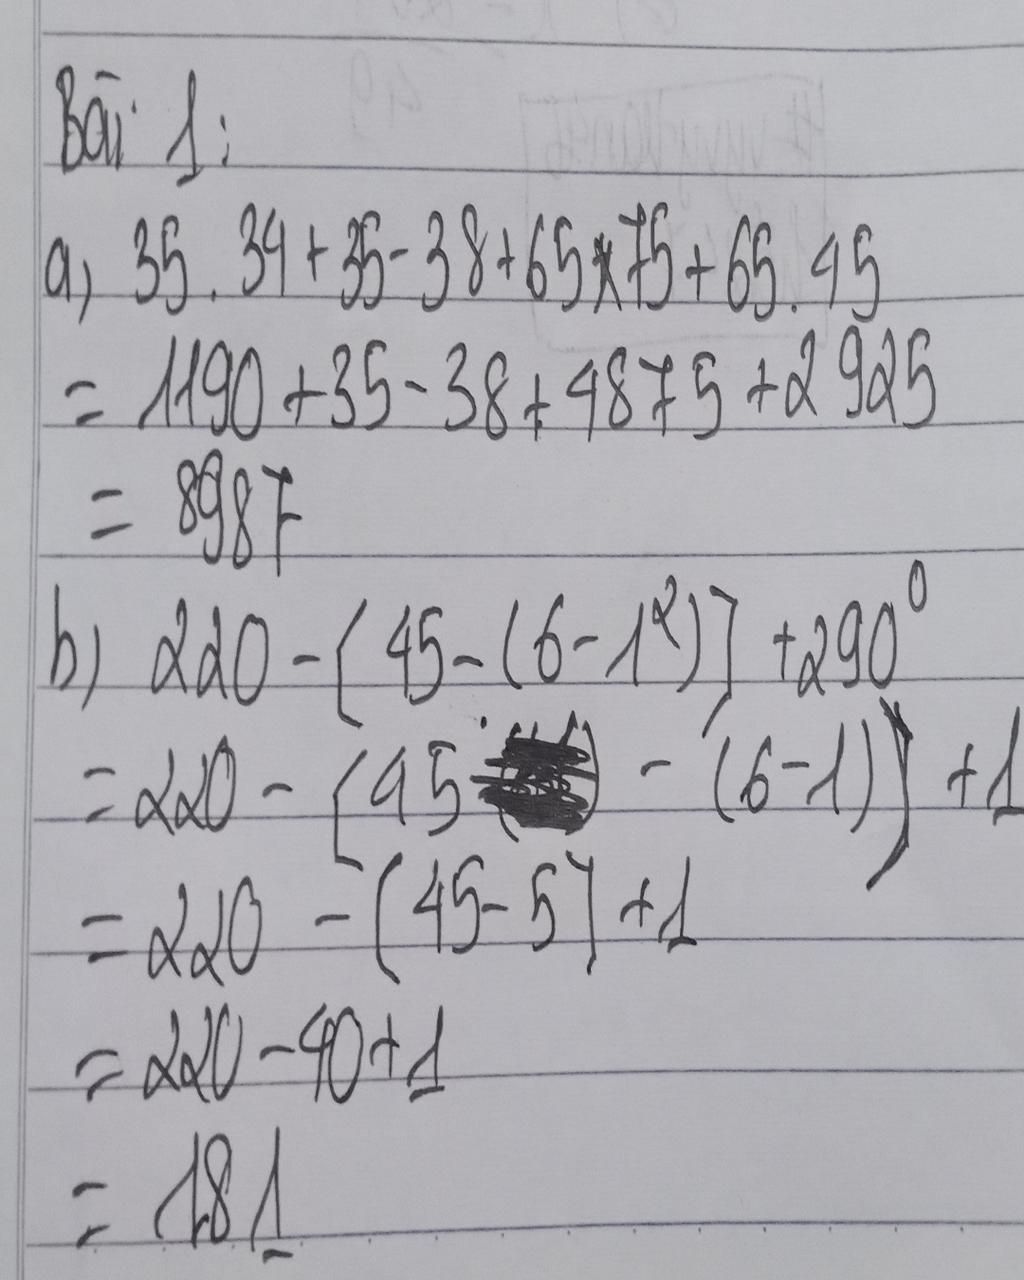 Bài 1:
a, 35 . 34 + 35 - 38 + 65 x 75 + 65 . 45
= 1190 + 35 - 38 + 4875 + 2925
= 8987
b) 220 - [ 45 - (6 - 1²)] + 290⁰
= 220 - [45 - (6 - 1)] + 1
= 220 - [45 - 5] + 1
= 220 - 40 + 1
= 181